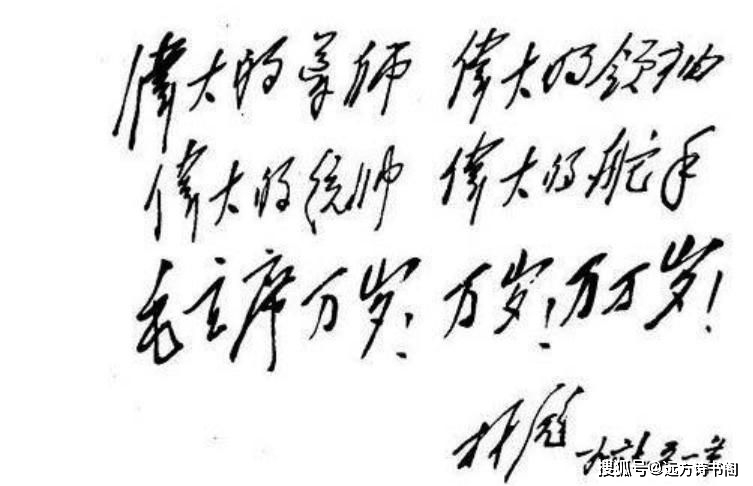 偉大的导师 偉大的领袖
偉大的统帅 偉大的舵手
毛主席万岁！万岁！万万岁！
林彪
搜狐号@远方诗书阁